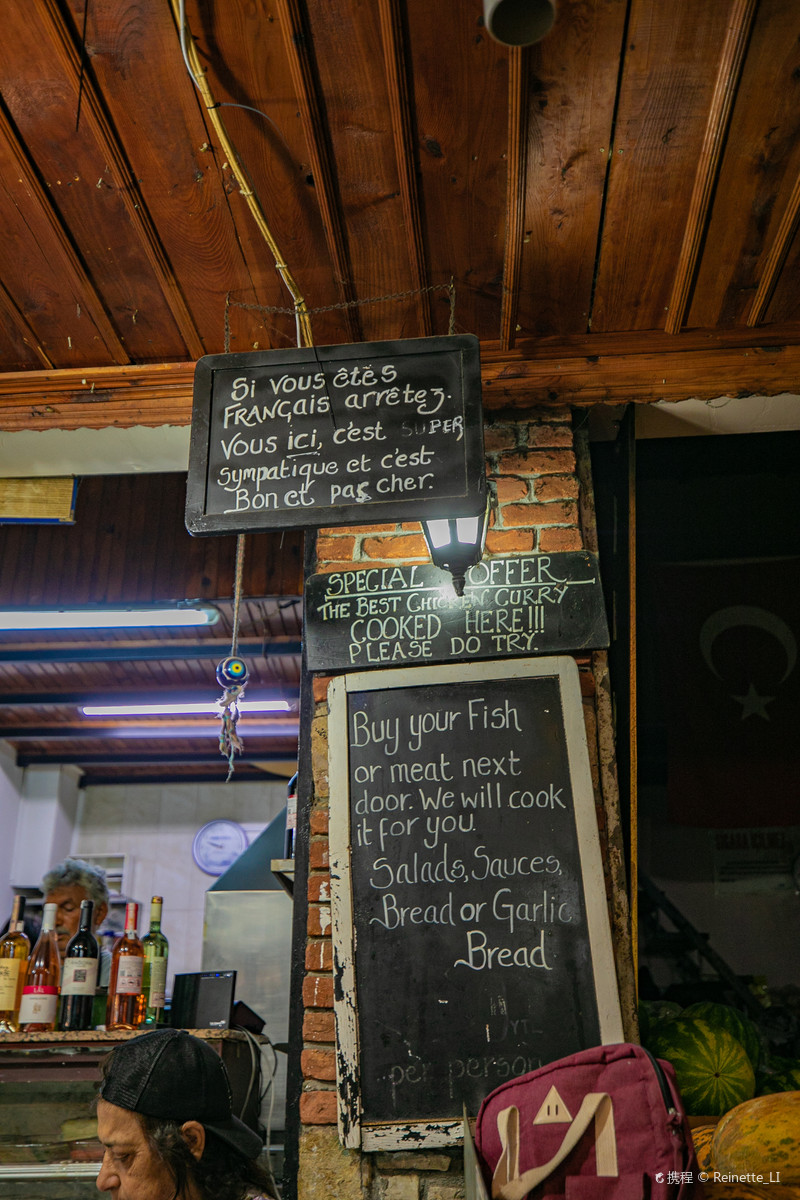 Si vous êtês
FRANÇais arrêtez.
Vous ici, c'est SUPER
sympatique et c'est
Bon et pas cher.
SPECIAL OFFER
THE BEST CHICKEN CURRY
COOKED HERE!!!
PLEASE DO TRY.
Buy your Fish
or meat next
door. We will cook
it for you.
Salads, Sauces,
Bread or Garlic
Bread
per person
携程 © Reinette_LI